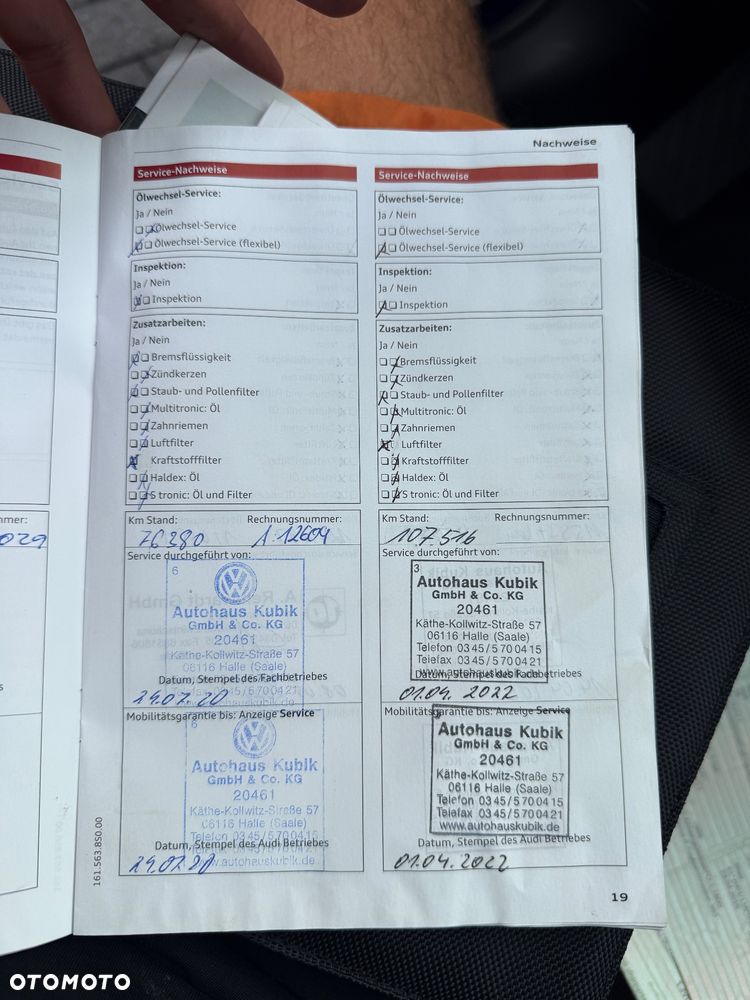 Nachweise
Service-Nachweise
Ölwechsel-Service:
Ja / Nein
Ölwechsel-Service
Ölwechsel-Service (flexibel)
Inspektion:
Ja / Nein
Inspektion
Zusatzarbeiten:
Ja / Nein
Bremsflüssigkeit
Zündkerzen
Staub- und Pollenfilter
Multitronic: Öl
Zahnriemen
Luftfilter
Kraftstofffilter
Haldex: Öl
S tronic: Öl und Filter
Km Stand: Rechnungsnummer:
76380 A 12604
Service durchgeführt von:
6
Autohaus Kubik
GmbH & Co. KG
20461
Käthe-Kollwitz-Straße 57
06116 Halle (Saale)
Datum, Stempel des Fachbetriebes
24.07.20
Mobilitätsgarantie bis: Anzeige Service
6
Autohaus Kubik
GmbH & Co. KG
20461
Käthe-Kollwitz-Straße 57
06116 Halle (Saale)
Telefon 03 45 / 5 70 04 15
Datum, Stempel des Audi Betriebes
www.autohauskubik.de
24.07.20
Service-Nachweise
Ölwechsel-Service:
Ja / Nein
Ölwechsel-Service
Ölwechsel-Service (flexibel)
Inspektion:
Ja / Nein
Inspektion
Zusatzarbeiten:
Ja / Nein
Bremsflüssigkeit
Zündkerzen
Staub- und Pollenfilter
Multitronic: Öl
Zahnriemen
Luftfilter
Kraftstofffilter
Haldex: Öl
S tronic: Öl und Filter
Km Stand: Rechnungsnummer:
107516
Service durchgeführt von:
3
Autohaus Kubik
GmbH & Co. KG
20461
Käthe-Kollwitz-Straße 57
06116 Halle (Saale)
Telefon 03 45 / 5 70 04 15
Telefax 03 45 / 5 70 04 21
www.autohauskubik.de
Datum, Stempel des Fachbetriebes
01.04.2022
Mobilitätsgarantie bis: Anzeige Service
Autohaus Kubik
GmbH & Co. KG
20461
Käthe-Kollwitz-Straße 57
06116 Halle (Saale)
Telefon 03 45 / 5 70 04 15
Telefax 03 45 / 5 70 04 21
www.autohauskubik.de
Datum, Stempel des Audi Betriebes
01.04.2022
161.563.8S0.00
19
OTOMOTO